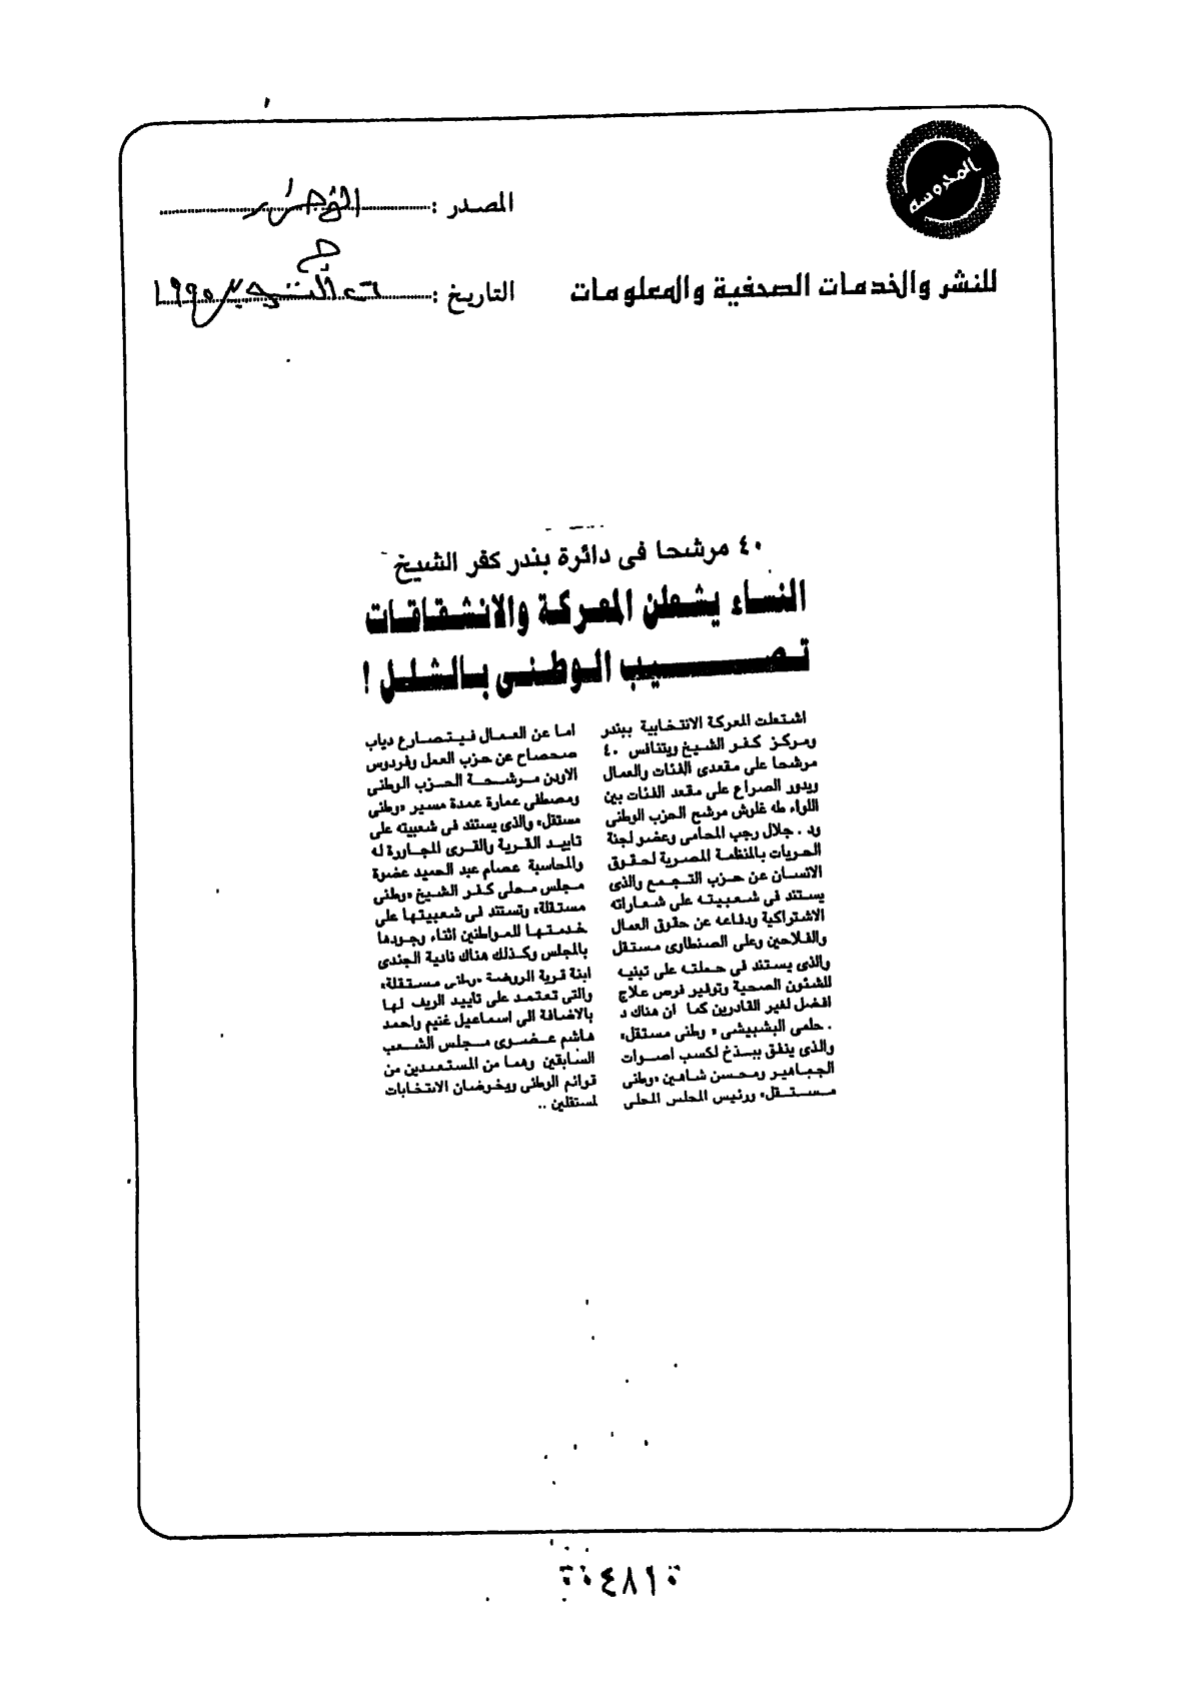 المحروسة
المصدر :
للنشر والخدمات الصحفية والمعلومات
التاريخ : ١٩٩٥
٤٠ مرشحا فى دائرة بندر كفر الشيخ
النساء يشعلن المعركة والانشقاقات
تصيب الوطنى بالشلل !
اشتعلت المعركة الانتخابية ببندر
ومركز كفر الشيخ ويتنافس ٤٠
مرشحا على مقعدى الفئات والعمال
ويدور الصراع على مقعد الفئات بين
اللواء طه غلوش مرشح الحزب الوطنى
ود . جلال رجب المحامى وعضو لجنة
الحريات بالمنظمة المصرية لحقوق
الانسان عن حزب التجمع والذى
يستند فى شعبيته على شعاراته
الاشتراكية ودفاعه عن حقوق العمال
والفلاحين وعلى الصنطاوى مستقل
والذى يستند فى حملته على تبنيه
للشئون الصحية وتوفير فرص علاج
افضل لغير القادرين كما ان هناك د
. حلمى البشبيشى « وطنى مستقل»
والذى ينفق ببذخ لكسب اصوات
الجماهير ومحسن شاهين «وطنى
مستقل» ورئيس المجلس المحلى
اما عن العمال فيتصارع دياب
صحصاح عن حزب العمل وفردوس
الاودن مرشحة الحزب الوطنى
ومصطفى عمارة عمدة مسير «وطنى
مستقل» والذى يستند فى شعبيته على
تاييد القرية والقرى المجاورة له
والمحاسبة عصام عبد الحميد عضوة
مجلس محلى كفر الشيخ «وطنى
مستقلة» وتستند فى شعبيتها على
خدمتها للمواطنين اثناء وجودها
بالمجلس وكذلك هناك نادية الجندى
ابنة قرية الروضة «وطنى مستقلة»
والتى تعتمد على تاييد الريف لها
بالاضافة الى اسماعيل غنيم واحمد
هاشم عضوى مجلس الشعب
السابقين وهما من المستبعدين من
قوائم الوطنى ويخوضان الانتخابات
لمستقلين ..